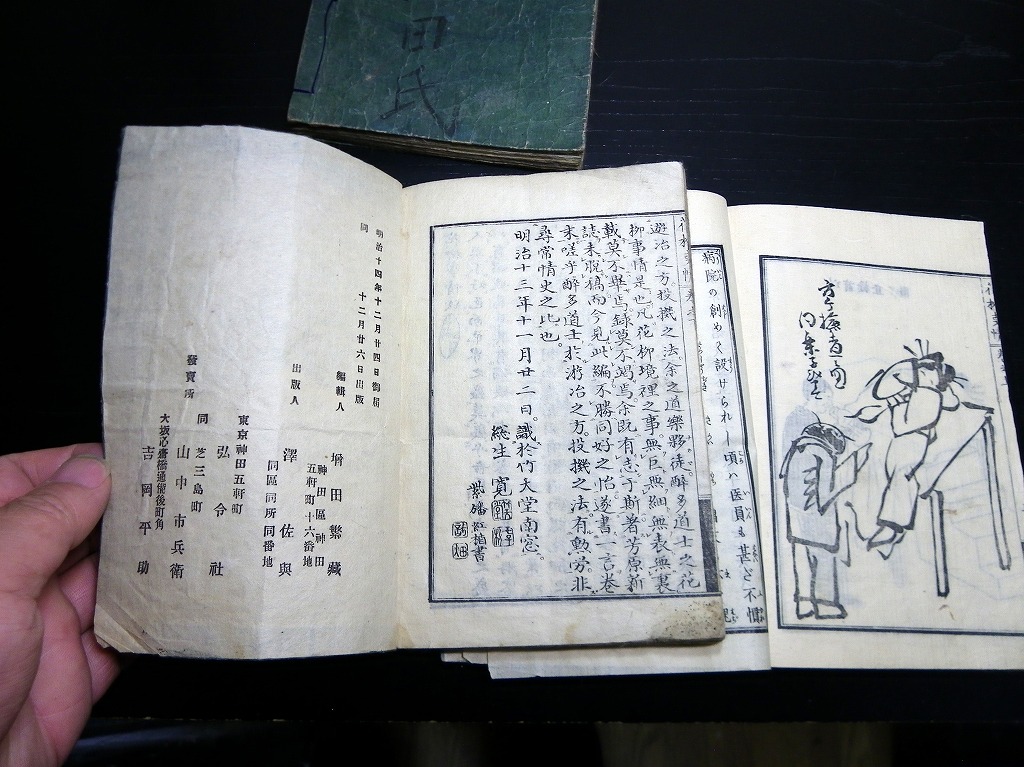 田氏
明治十四年十二月廿四日御届
同 十二月廿六日出版
編輯人 増田繁藏
神田區神田
五軒町十六番地
出版人 澤佐與
同區同所同番地
發賣所
東京神田五軒町
弘令社
同 芝三島町
山中市兵衛
大坂心齋橋通備後町角
吉岡平助
遊冶之方投機之法余之道樂夥徒醉多道士之花
柳事情是也凡花柳境裡之事無巨無細無表無裏
載莫不舉焉錄莫不竭焉余既有志于斯著芳原新
誌未脫稿而今見此編不勝同好之怡遂書一言卷
末嗟乎醉多道士於游冶之方投機之法有勲勞非
尋常情史之比也
明治十三年十一月廿二日識於竹天堂南窓
總生 寛
病院の創めて設けられし頃ハ医員も甚ど不慣